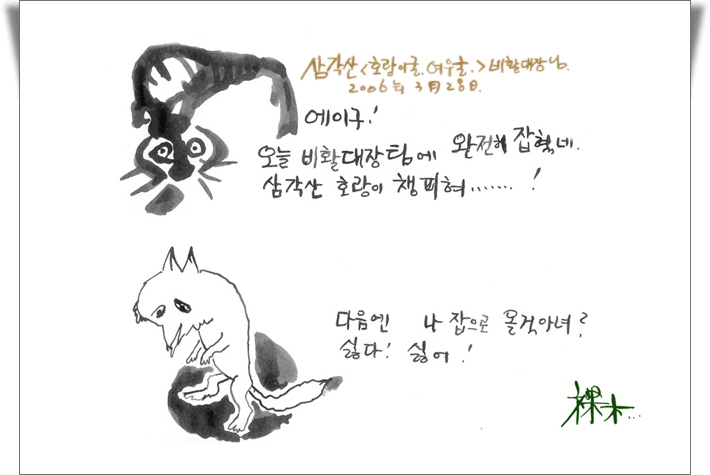 삼각산<호랑이굴.여우굴.>비활대장님.
2006年 3月28日.
에이구!
오늘 비활대장팀에 완전히 잡혔네.
삼각산 호랑이 챙피혀.......!
다음엔 나 잡으로 올것아녀?
싫다! 싫어!
裸木...